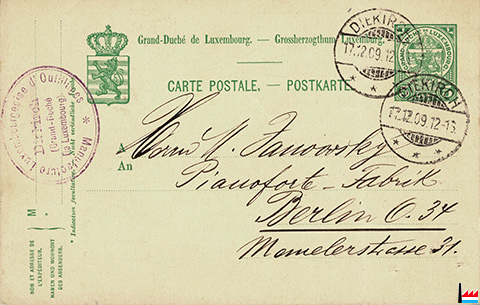 Grand-Duché de Luxembourg. - Grossherzogthum Luxemburg.
CARTE POSTALE. - POSTKARTE.
DIEKIRCH
17.12.09.12
DIEKIRCH
17.12.09.12-1S.
Manufacture Luxembourgeoise d'Outillages
(Grand-Duché
de Luxembourg)
A
An
Herrn M. Janowsky
Pianoforte-Fabrik
Berlin O. 34
Memelerstrasse 31.
M
NOM ET ADRESSE DE
L'EXPÉDITEUR.
NAMEN UND WOHNORT
DES ABSENDERS.
* Indication facultative. - Nicht